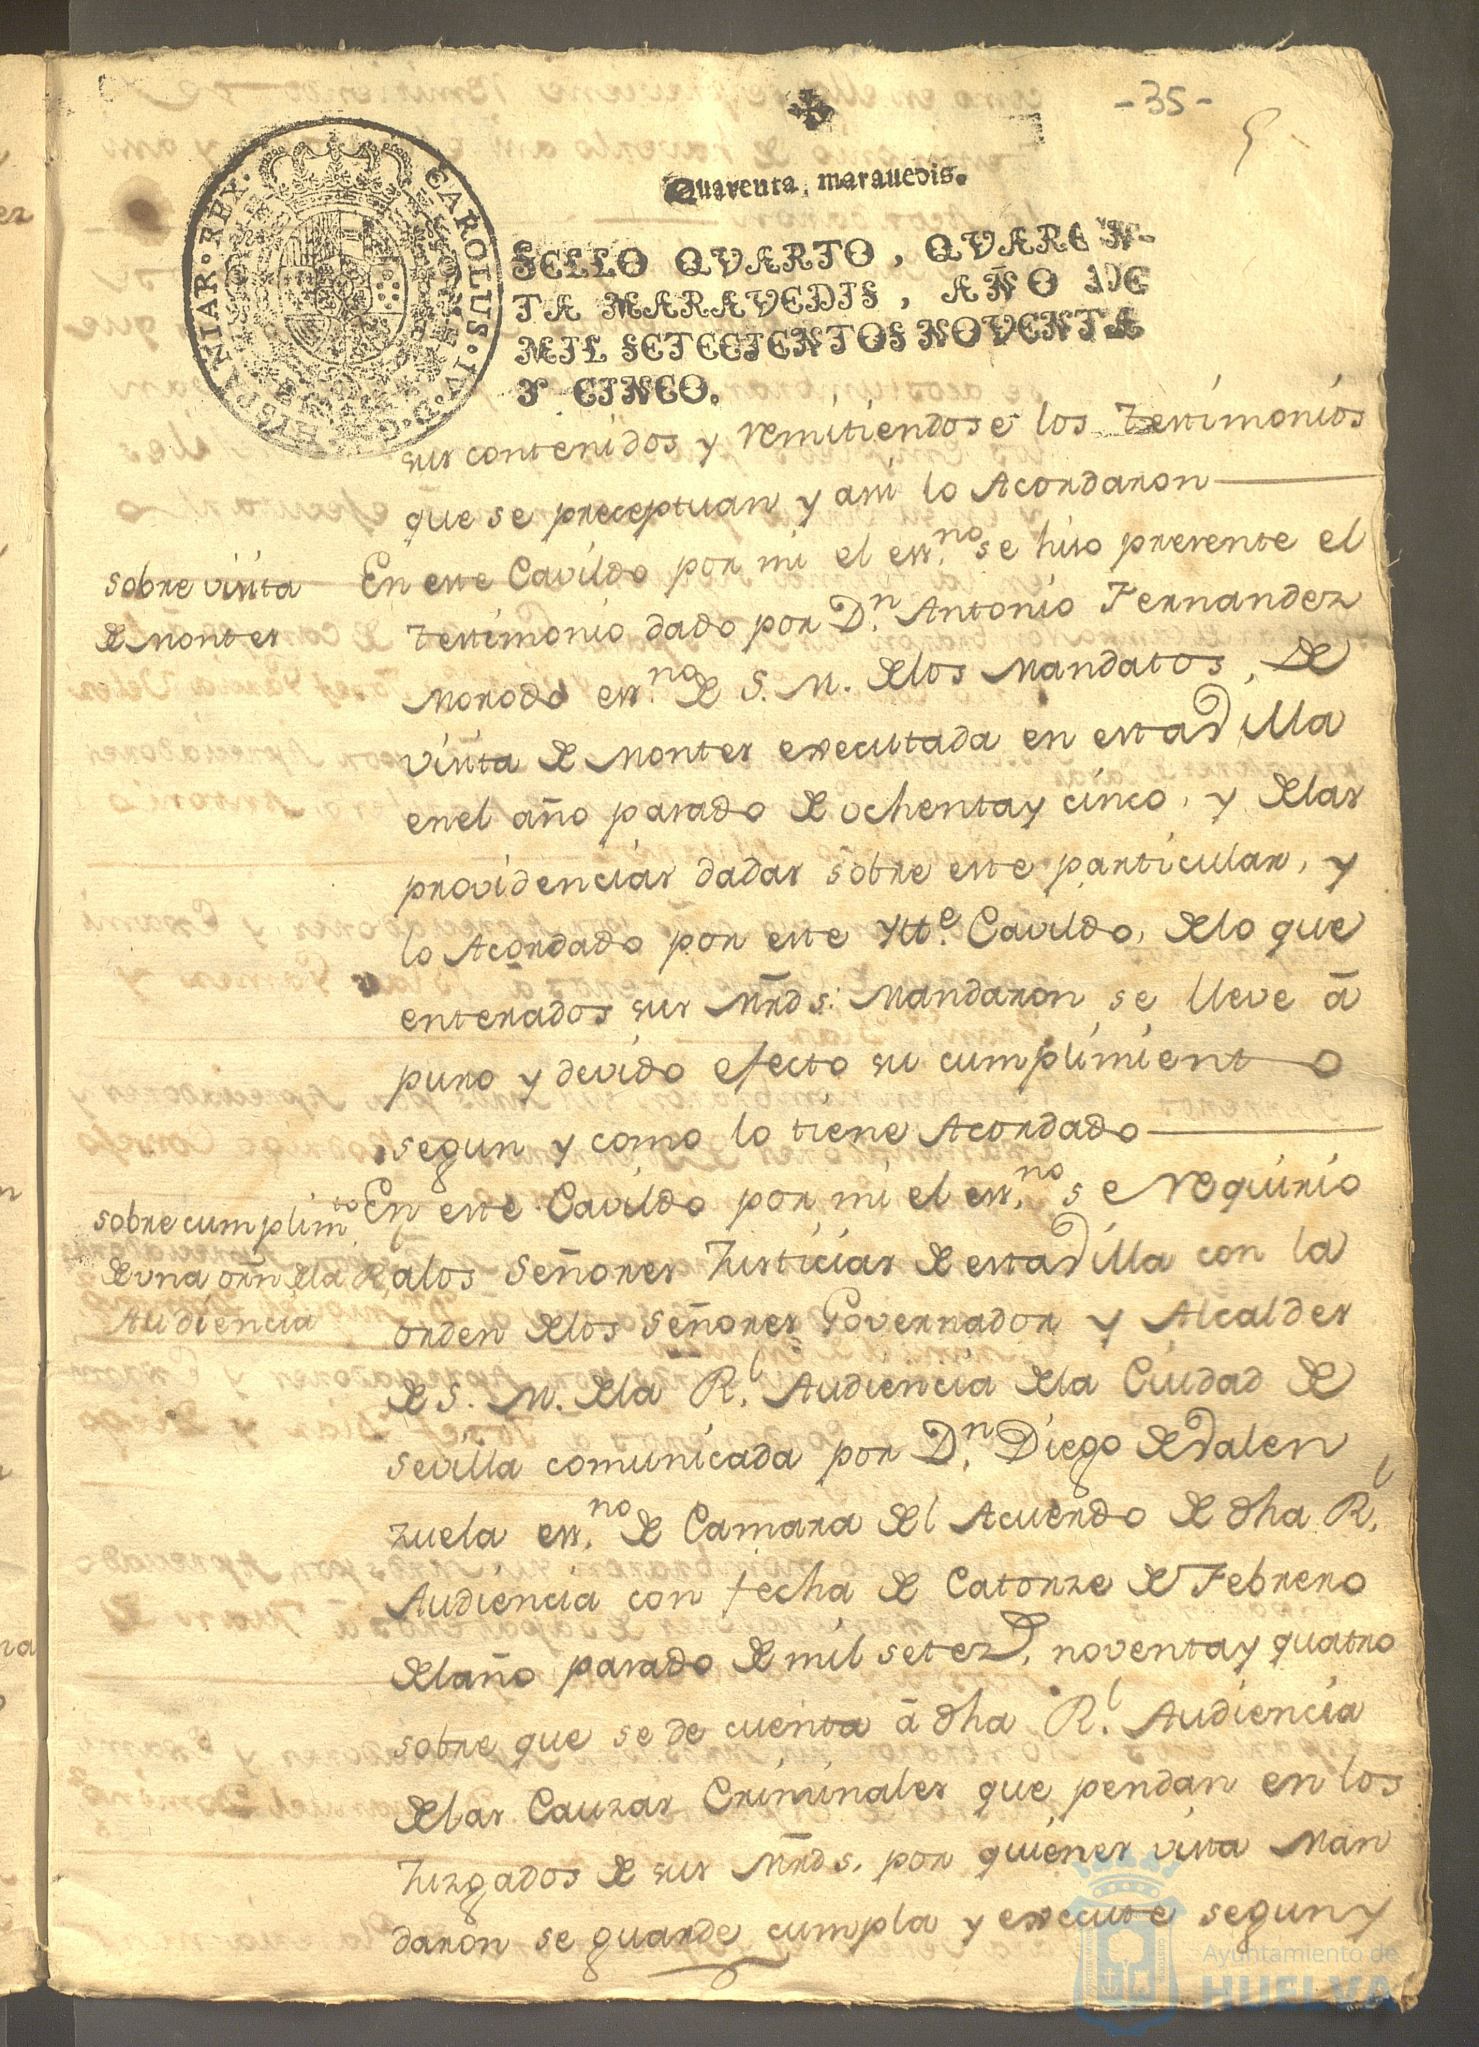 -35-
5
Quarenta maravedis.
CAROLUS·IV·D·G·HISPANIAR·REX·
SELLO QVARTO, QVAREN-
TA MARAVEDIS, AÑO DE
MIL SETECIENTOS NOVENTA
Y CINCO.
sus contenidos y remitiendose los testimonios
que se preceptuan y asi lo Acordaron
sobre visita
de Montes
En este Cavildo por mi el essno. se hiso presente el
testimonio dado por Dn. Antonio Fernandez
Morodo essno. de S. M. delos Mandatos, de
visita de Montes executada en esta Villa
enel año pasado de ochenta y cinco, y delas
providencias dadas sobre este particular, y
lo Acordado por este Ytte. Cavildo, delo que
enterados sus Mrds. Mandaron se lleve á
puro y devido efecto su cumplimiento
segun y como lo tiene Acordado
sobre cumplimto.
de una orn dela Rl
Audiencia
En este Cavildo por mi el essno. se requirio
alos Señores Justicias de esta Villa con la
orden delos Señores Governador y Alcaldes
de S. M. dela Rl. Audiencia dela Ciudad de
Sevilla comunicada por Dn. Diego de Valen
zuela essno. de Camara del Acuerdo de dha Rl.
Audiencia con fecha de Catorze de Febrero
delaño pasado de mil setezs. noventa y quatro
sobre que se de cuenta á dha Rl. Audiencia
delas Cauzas Criminales que pendan en los
Juzgados de sus Mrds. por quienes vista Man
daron se guarde cumpla y execute segun y
Ayuntamiento de
HUELVA